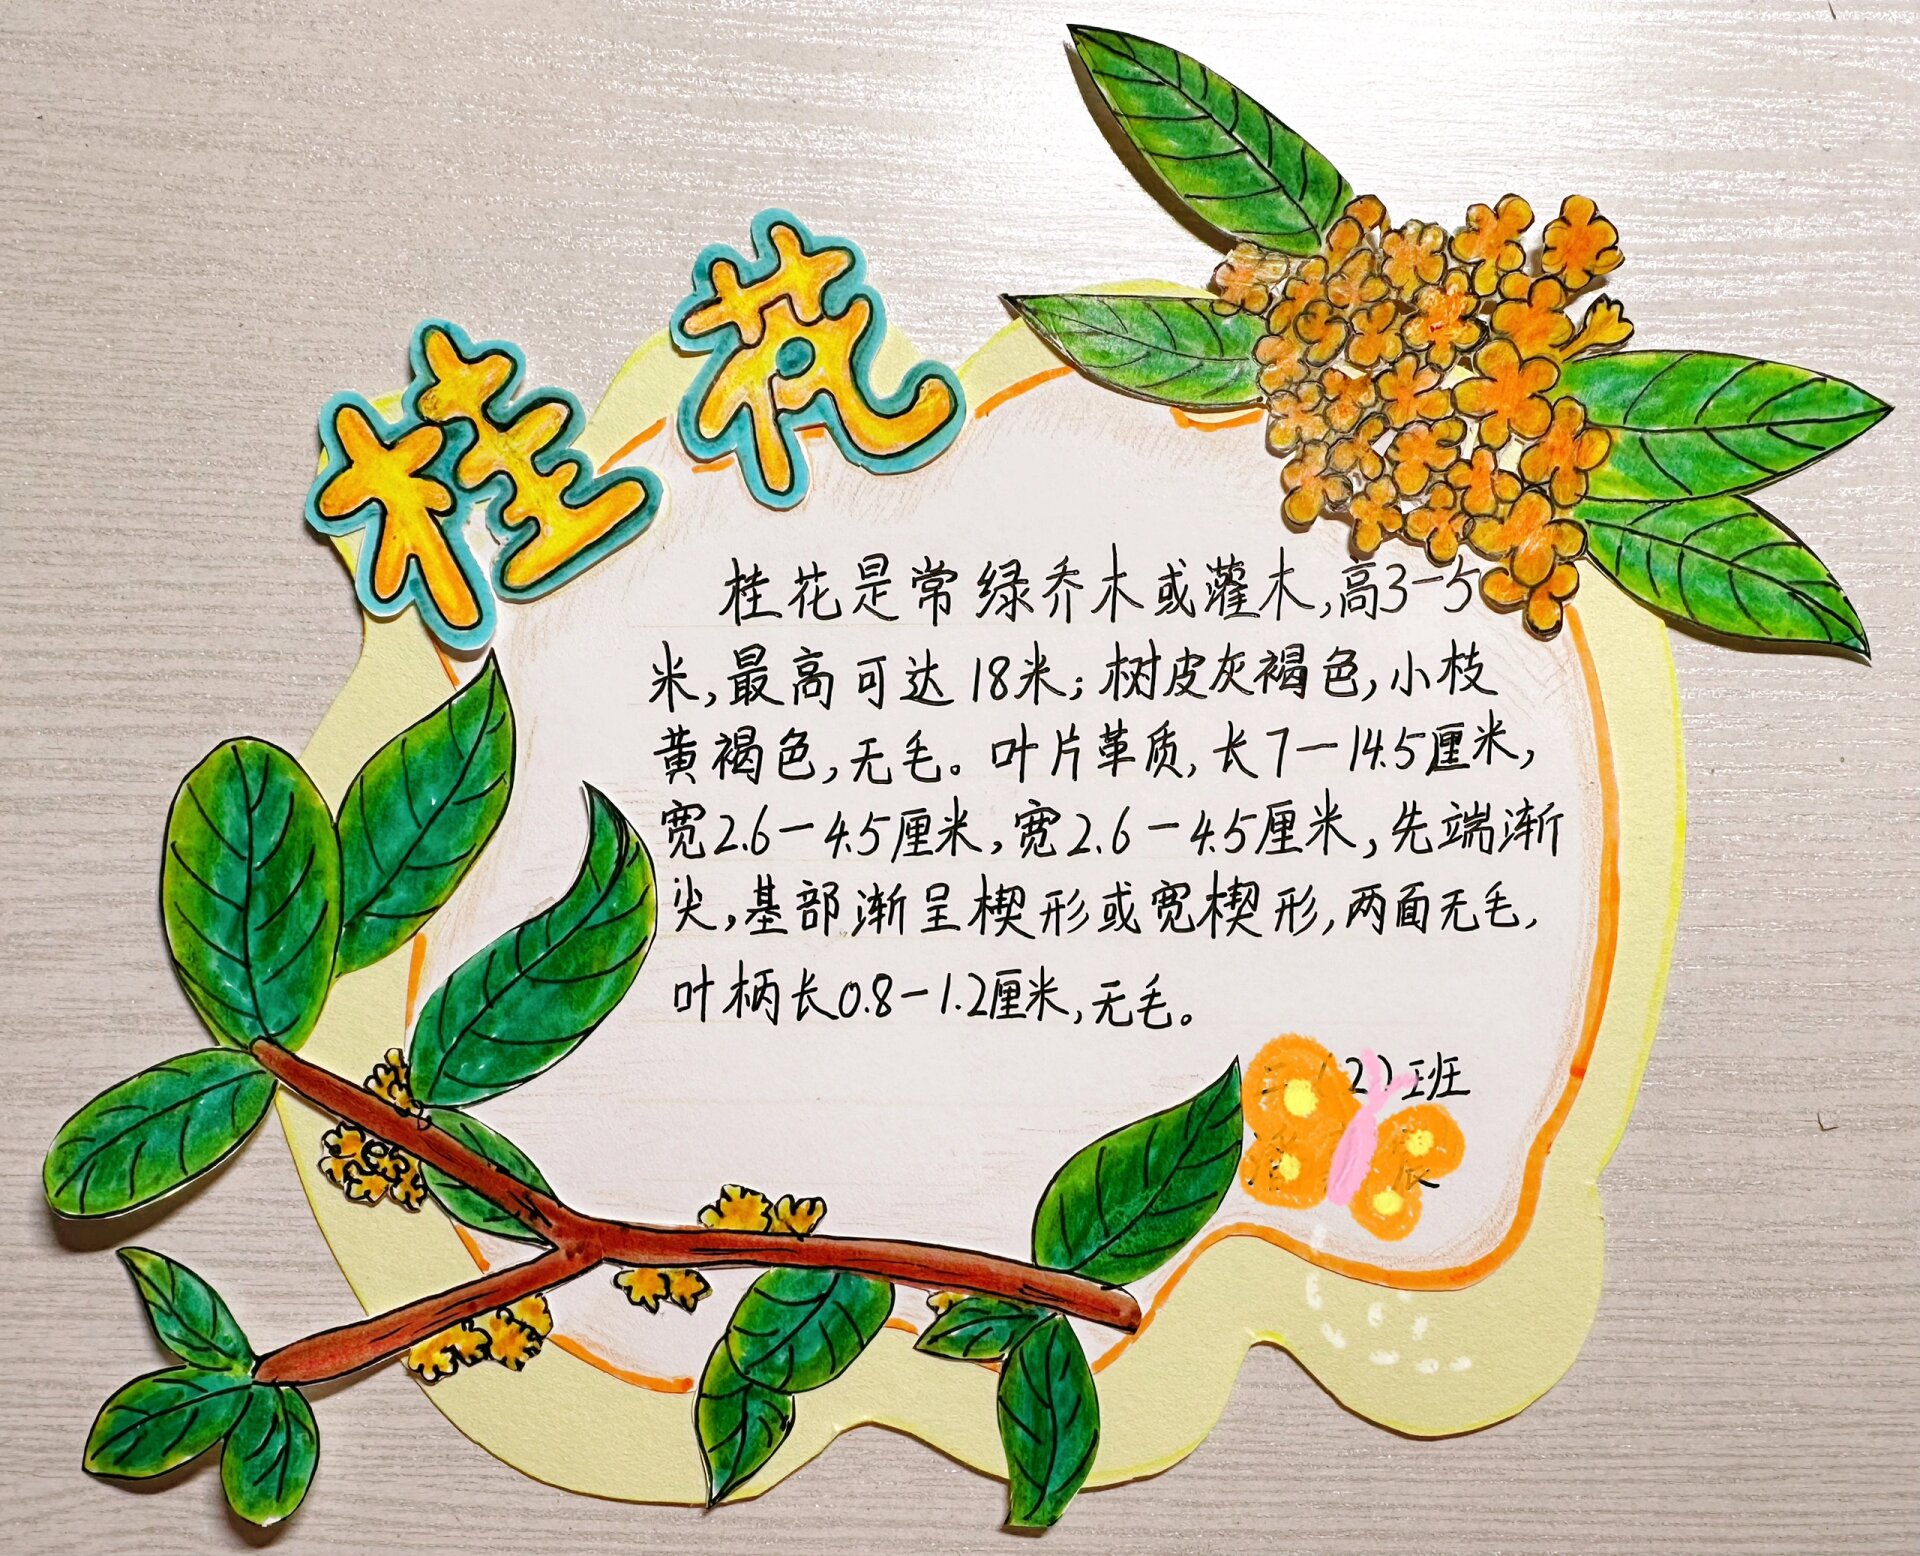 桂花
桂花是常绿乔木或灌木,高3-5
米,最高可达18米;树皮灰褐色,小枝
黄褐色,无毛。叶片革质,长7-14.5厘米,
宽2.6-4.5厘米,宽2.6-4.5厘米,先端渐
尖,基部渐呈楔形或宽楔形,两面无毛,
叶柄长0.8-1.2厘米,无毛。
(2)班